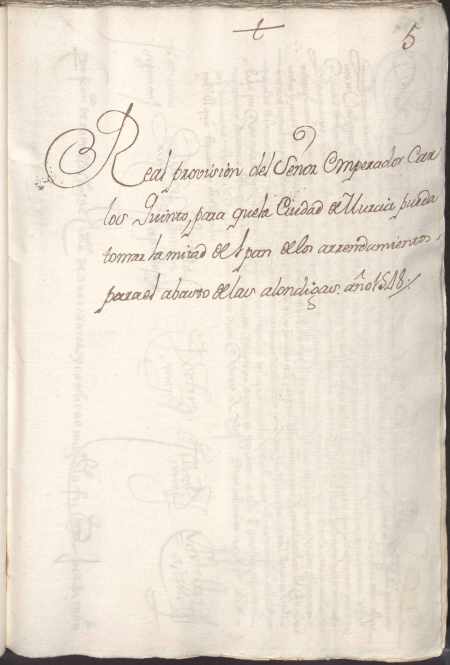 5
Real provision del Señor Emperador Car
los Quinto, para que la Ciudad de Murcia pueda
tomar la mitad del pan de los arrendamientos,
para el abasto de las alondigas. año 1548